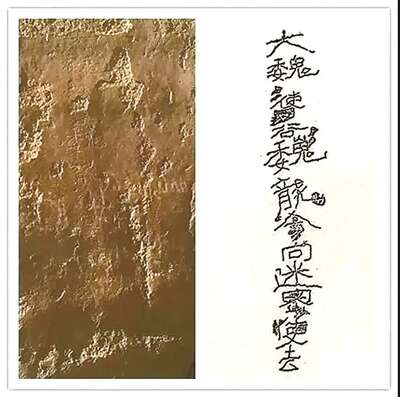 大魏使谷巍龍今向迷密使去